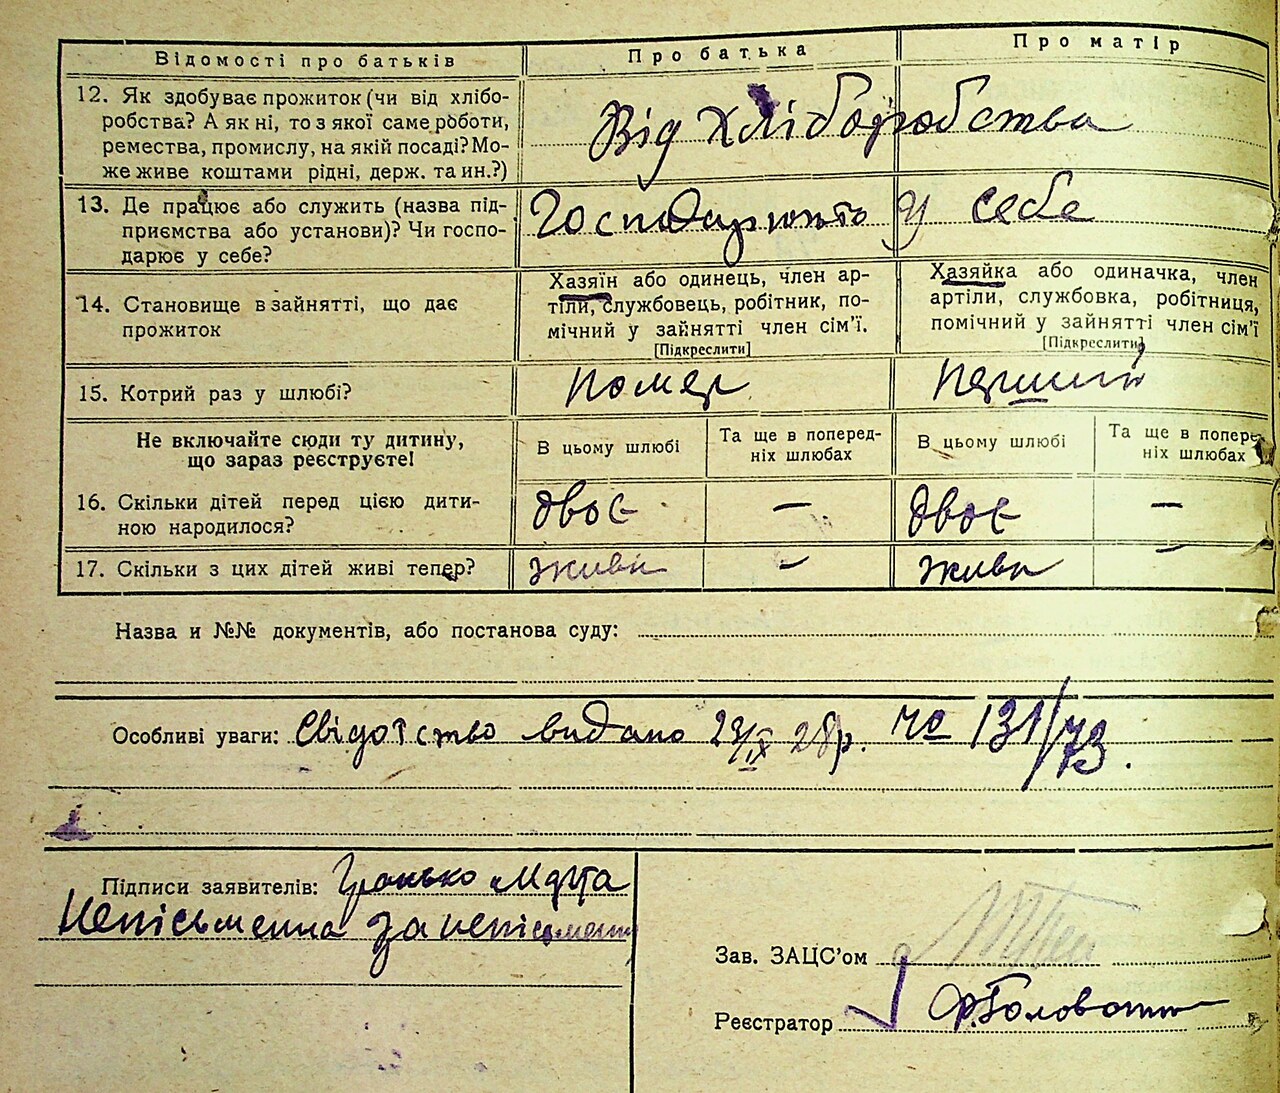 Відомості про батьків Про батька Про матір
12. Як здобуває прожиток (чи від хлібо-
робства? А як ні, то з якої саме роботи,
ремества, промислу, на якій посаді? Мо-
же живе коштами рідні, держ. та ин.?)
Від хліборобства
13. Де працює або служить (назва під-
приємства або установи)? Чи госпо-
дарює у себе?
Господарюють у себе
14. Становище в зайнятті, що дає
прожиток
Хазяїн або одинець, член ар-
тіли, службовець, робітник, по-
мічний у зайнятті член сім'ї.
[Підкреслити]
Хазяйка або одиначка, член
артіли, службовка, робітниця,
помічний у зайнятті член сім'ї
[Підкреслити]
15. Котрий раз у шлюбі? помер перший
Не включайте сюди ту дитину,
що зараз реєструєте!
В цьому шлюбі
Та ще в поперед-
ніх шлюбах
В цьому шлюбі
Та ще в попере-
ніх шлюбах
16. Скільки дітей перед цією дити-
ною народилося?
двоє — двоє —
17. Скільки з цих дітей живі тепер? живи — живи —
Назва и №№ документів, або постанова суду:
Особливі уваги: Свідотство видано 23/IX 28р. № 131/73.
Підписи заявителів: Марта
Неписьменна за неписьменну
Зав. ЗАЦС'ом
Реєстратор